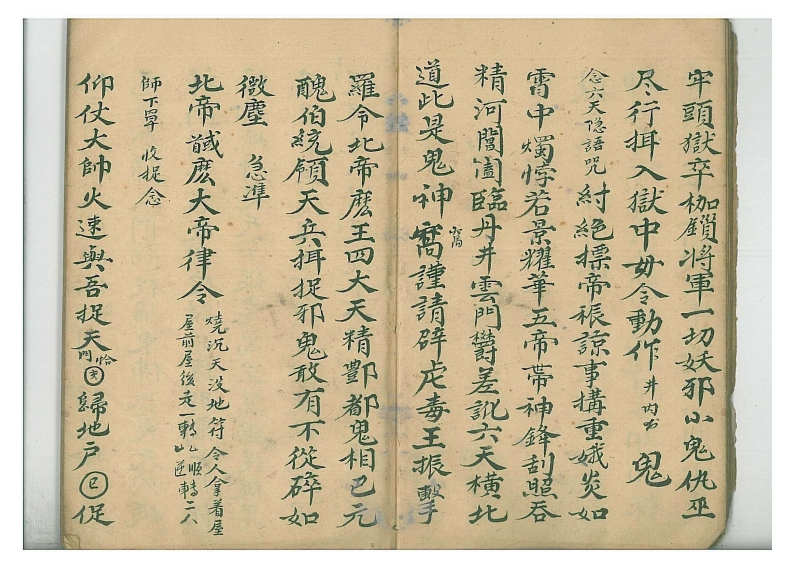 牢頭獄卒枷鎖將軍一切妖邪小鬼仇巫
尽行挕入獄中毋令動作 井内书 鬼
念六天隐語咒 紂絕摽帝裖諒事搆重娥炎如
霄中燭悙若景耀華五帝帶神鋒刮照吞
精河閶崮臨丹井雲門鬱差訛六天橫北
道此是鬼神喬謹請辟庀毒王振擊
羅令北帝麽王四大天精酆都鬼相巴元
醜伯統領天兵挕捉邪鬼敢有不從碎如
微塵 急準
北帝馘麽大帝律令 燒沉天没地符 令人拿着屋
屋前屋後走一轉 順轉 逆轉 二人
師下罩 收捉念
仰仗大帥火速與吾捉天門 恰 歸地户 巳 促